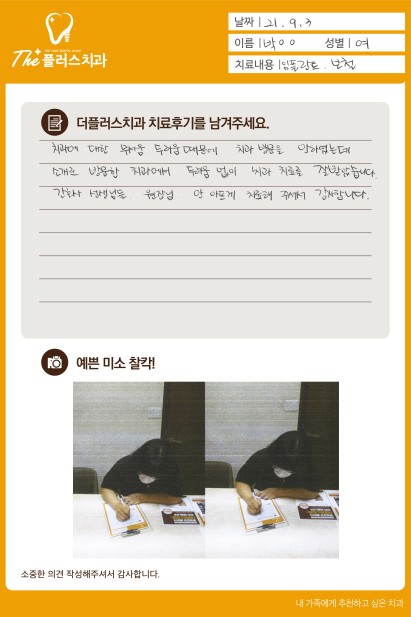 날짜 | 21. 9. 3
이름 | 박○○ 성별 | 여
치료내용 | 임플란트. 보철
The 플러스치과
더플러스치과 치료후기를 남겨주세요.
치과에 대한 두려움 때문에 치과 방문을 안하였는데
소개로 방문한 치과에서 두려움 없이 치과 치료를 잘받았습니다.
간호사 선생님들. 원장님 안 아프게 치료해 주셔서 감사합니다.
예쁜 미소 찰칵!
소중한 의견 작성해주셔서 감사합니다.
내 가족에게 추천하고 싶은 치과